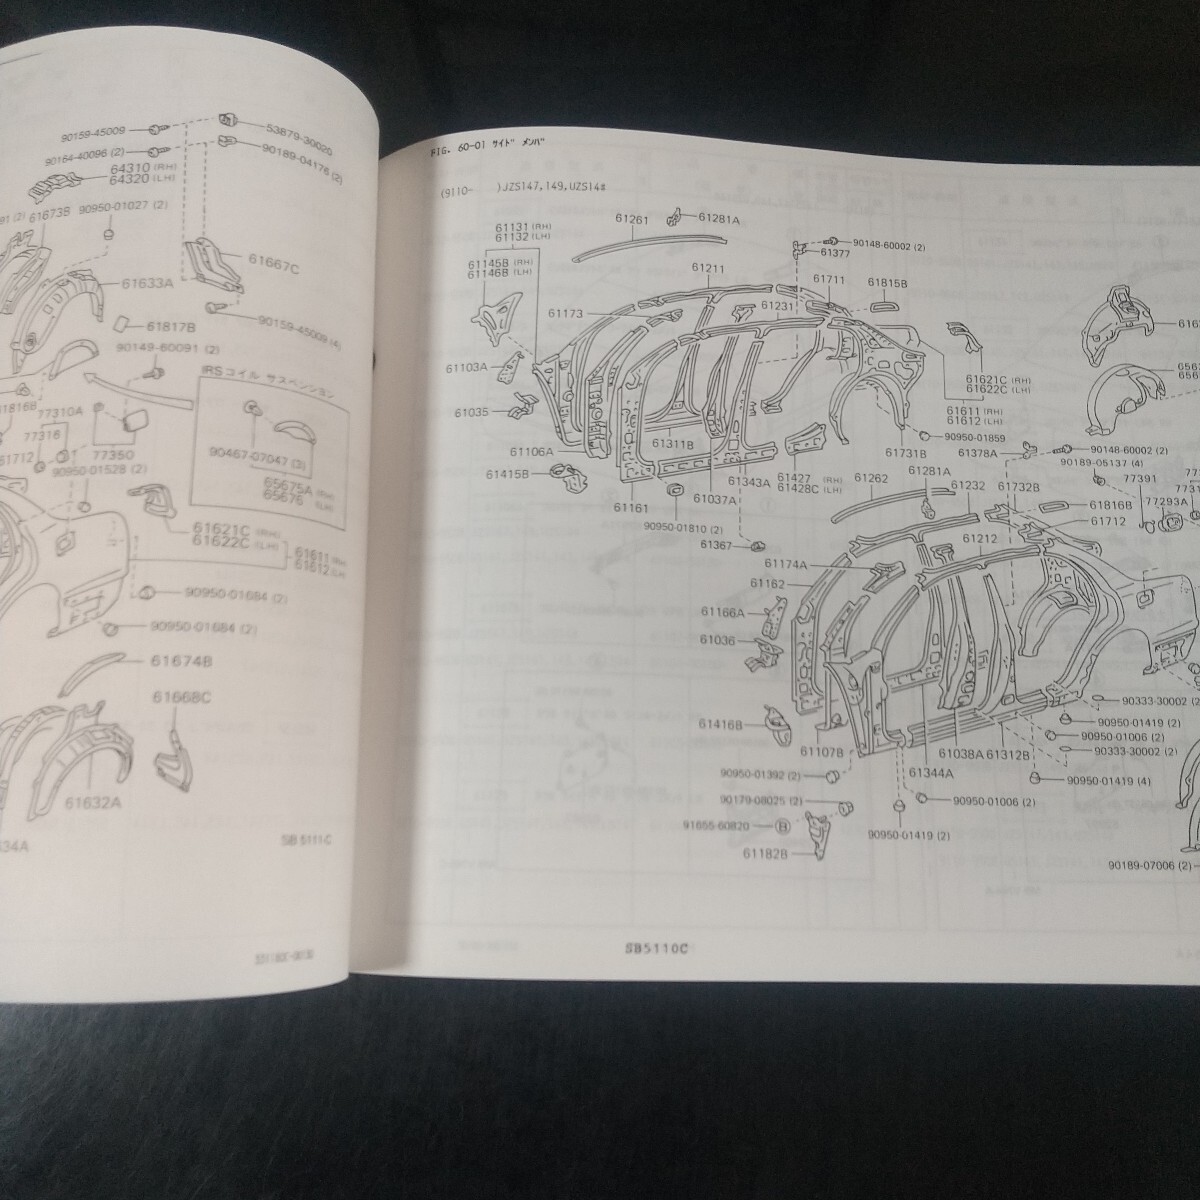 90159-45009
53879-30020
90164-40096 (2)
90189-04176 (2)
64310 (RH)
64320 (LH)
61673B
90950-01027 (2)
61667C
61633A
61817B
90159-45009 (4)
90149-60091 (2)
IRSコイル サスペンション
77310A
77316
61712
77350
90950-01528 (2)
90467-07047 (3)
65675A (RH)
65676 (LH)
61621C (RH)
61622C (LH)
61611 (RH)
61612 (LH)
90950-01684 (2)
90950-01684 (2)
61674B
61668C
61632A
634A
SB 5111-C
FIG. 60-01 サイド メンバ
(9110- )JZS147,149,UZS14#
61131 (RH)
61132 (LH)
61261
61281A
90148-60002 (2)
61377
61145B (RH)
61146B (LH)
61211
61711
61815B
61173
61231
61103A
61035
61621C (RH)
61622C (LH)
61611 (RH)
61612 (LH)
61106A
61311B
90950-01859
61731B
61378A
90148-60002 (2)
90189-05137 (4)
61415B
61161
61037A
61343A
61427 (RH)
61428C (LH)
61262
61281A
61232
61732B
77391
77293A
61816B
61712
90950-01810 (2)
61367
61212
61174A
61162
61166A
61036
61416B
61107B
61344A
61038A
61312B
90333-30002 (2)
90950-01419 (2)
90950-01006 (2)
90333-30002 (2)
90950-01419 (4)
90950-01392 (2)
90179-08025 (2)
90950-01006 (2)
91655-60820
90950-01419 (2)
61182B
90189-07006 (2)
SB5110C